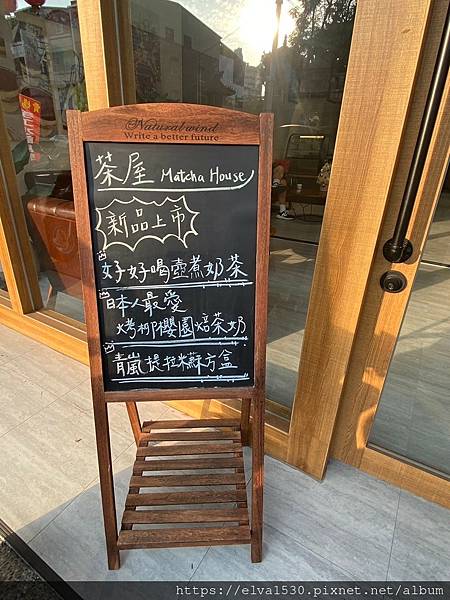 Natural wind
Write a better future
茶屋 Matcha House
新品上市
好好喝壺煮奶茶
日本人最愛
烤柳櫻園焙茶奶
青嵐提拉米蘇方盒
https://elva1530.pixnet.net/album